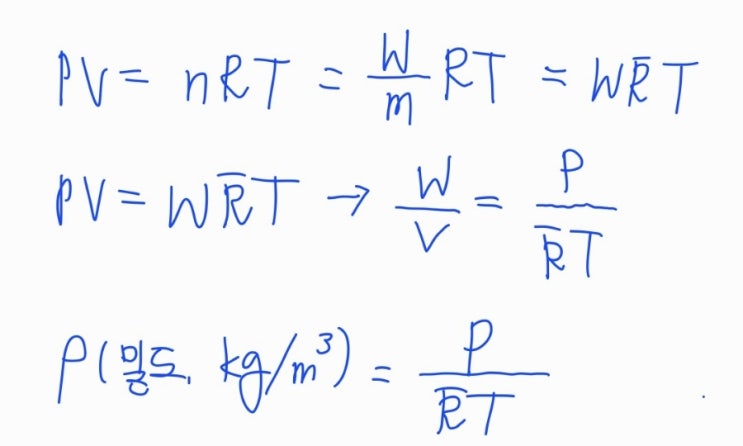 PV = nRT = W/m RT = WR̅T
PV = WR̅T → W/V = P/R̅T
ρ(밀도, kg/m³) = P/R̅T